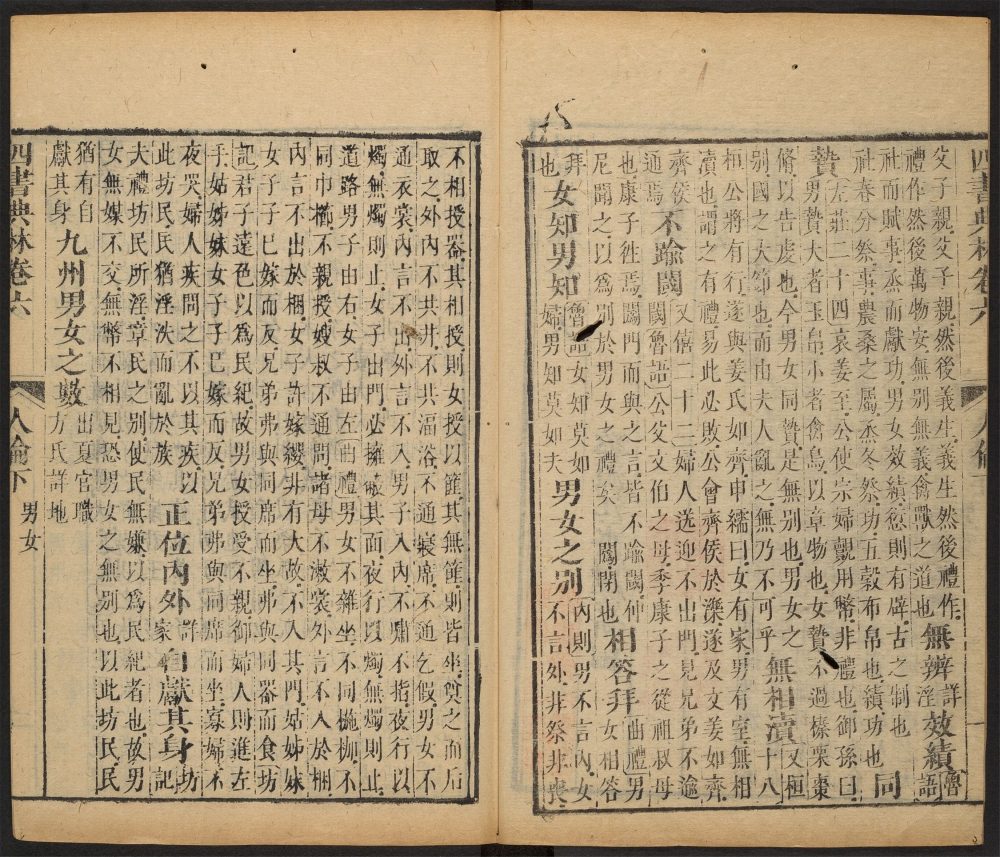 四書典林卷六　人倫下
父子親父子親然後義生義生然後禮作
禮作然後萬物安無別無義禽獸之道也 無辨 詳淫 效績 魯語
社而賦事烝而獻功男女效績愆則有辟古之制也
社春分祭事農桑之屬烝冬祭功五穀布帛也績功也 同
贄 左莊二十四哀姜至公使宗婦覿用幣非禮也御孫曰
男贄大者玉帛小者禽鳥以章物也女贄不過榛栗棗
脩以告虔也今男女同贄是無別也男女之
別國之大節也而由夫人亂之無乃不可乎 無相瀆 又桓十八
桓公將有行遂與姜氏如齊申繻曰女有家男有室無相
瀆也謂之有禮易此必敗公會齊侯於濼遂及文姜如齊
齊侯通焉 不踰閾 又僖二十二婦人送迎不出門見兄弟不踰
閾魯語公父文伯之母季康子之從祖叔母
也康子往焉闖門而與之言皆不踰閾仲
尼聞之以爲別於男女之禮矣 闖閉也 相答拜 曲禮男女相答
拜也 女知男知 魯語女知莫如婦男知莫如夫 男女之別 內則男不言內女不言外非祭非喪
不相授器其相授則女授以篚其無篚則皆坐奠之而后
取之外內不共井不共湢浴不通寢席不通乞假男女不
通衣裳內言不出外言不入男子入內不嘯不指夜行以
燭無燭則止女子出門必擁蔽其面夜行以燭無燭則止
道路男子由右女子由左曲禮男女不雜坐不同椸枷不
同巾櫛不親授嫂叔不通問諸母不漱裳外言不入於梱
內言不出於梱女子許嫁纓非有大故不入其門姑姊妹
女子子已嫁而反兄弟弗與同席而坐弗與同器而食坊
記君子遠色以爲民紀故男女授受不親御婦人則進左
手姑姊妹女子子已嫁而反男子弗與同席而坐寡婦不
夜哭婦人疾問之不以其疾以
此坊民民猶淫泆而亂於族 正位內外 詳家 自獻其身 坊記
夫禮坊民所淫章民之別使民無嫌以爲民紀者也故男
女無媒不交無幣不相見恐男女之無別也以此坊民民
猶有自獻其身 九州男女之數 出夏官職方氏詳地
四書典林卷六　人倫下　男女